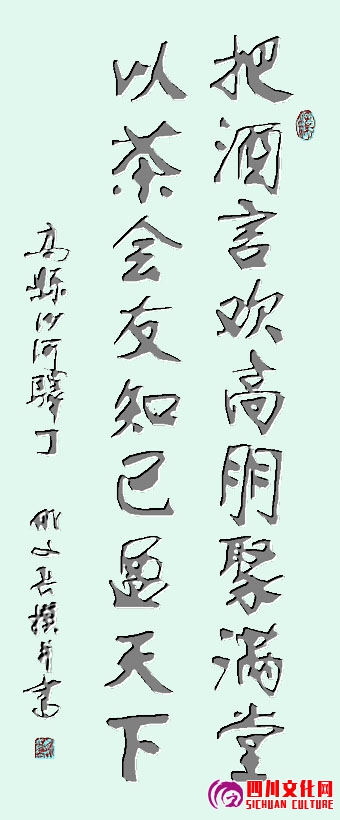 把酒言欢高朋聚满堂
以茶会友知己遍天下
高县沙河驿丁
文兵撰并书
四川文化网
SICHUAN CULTURE